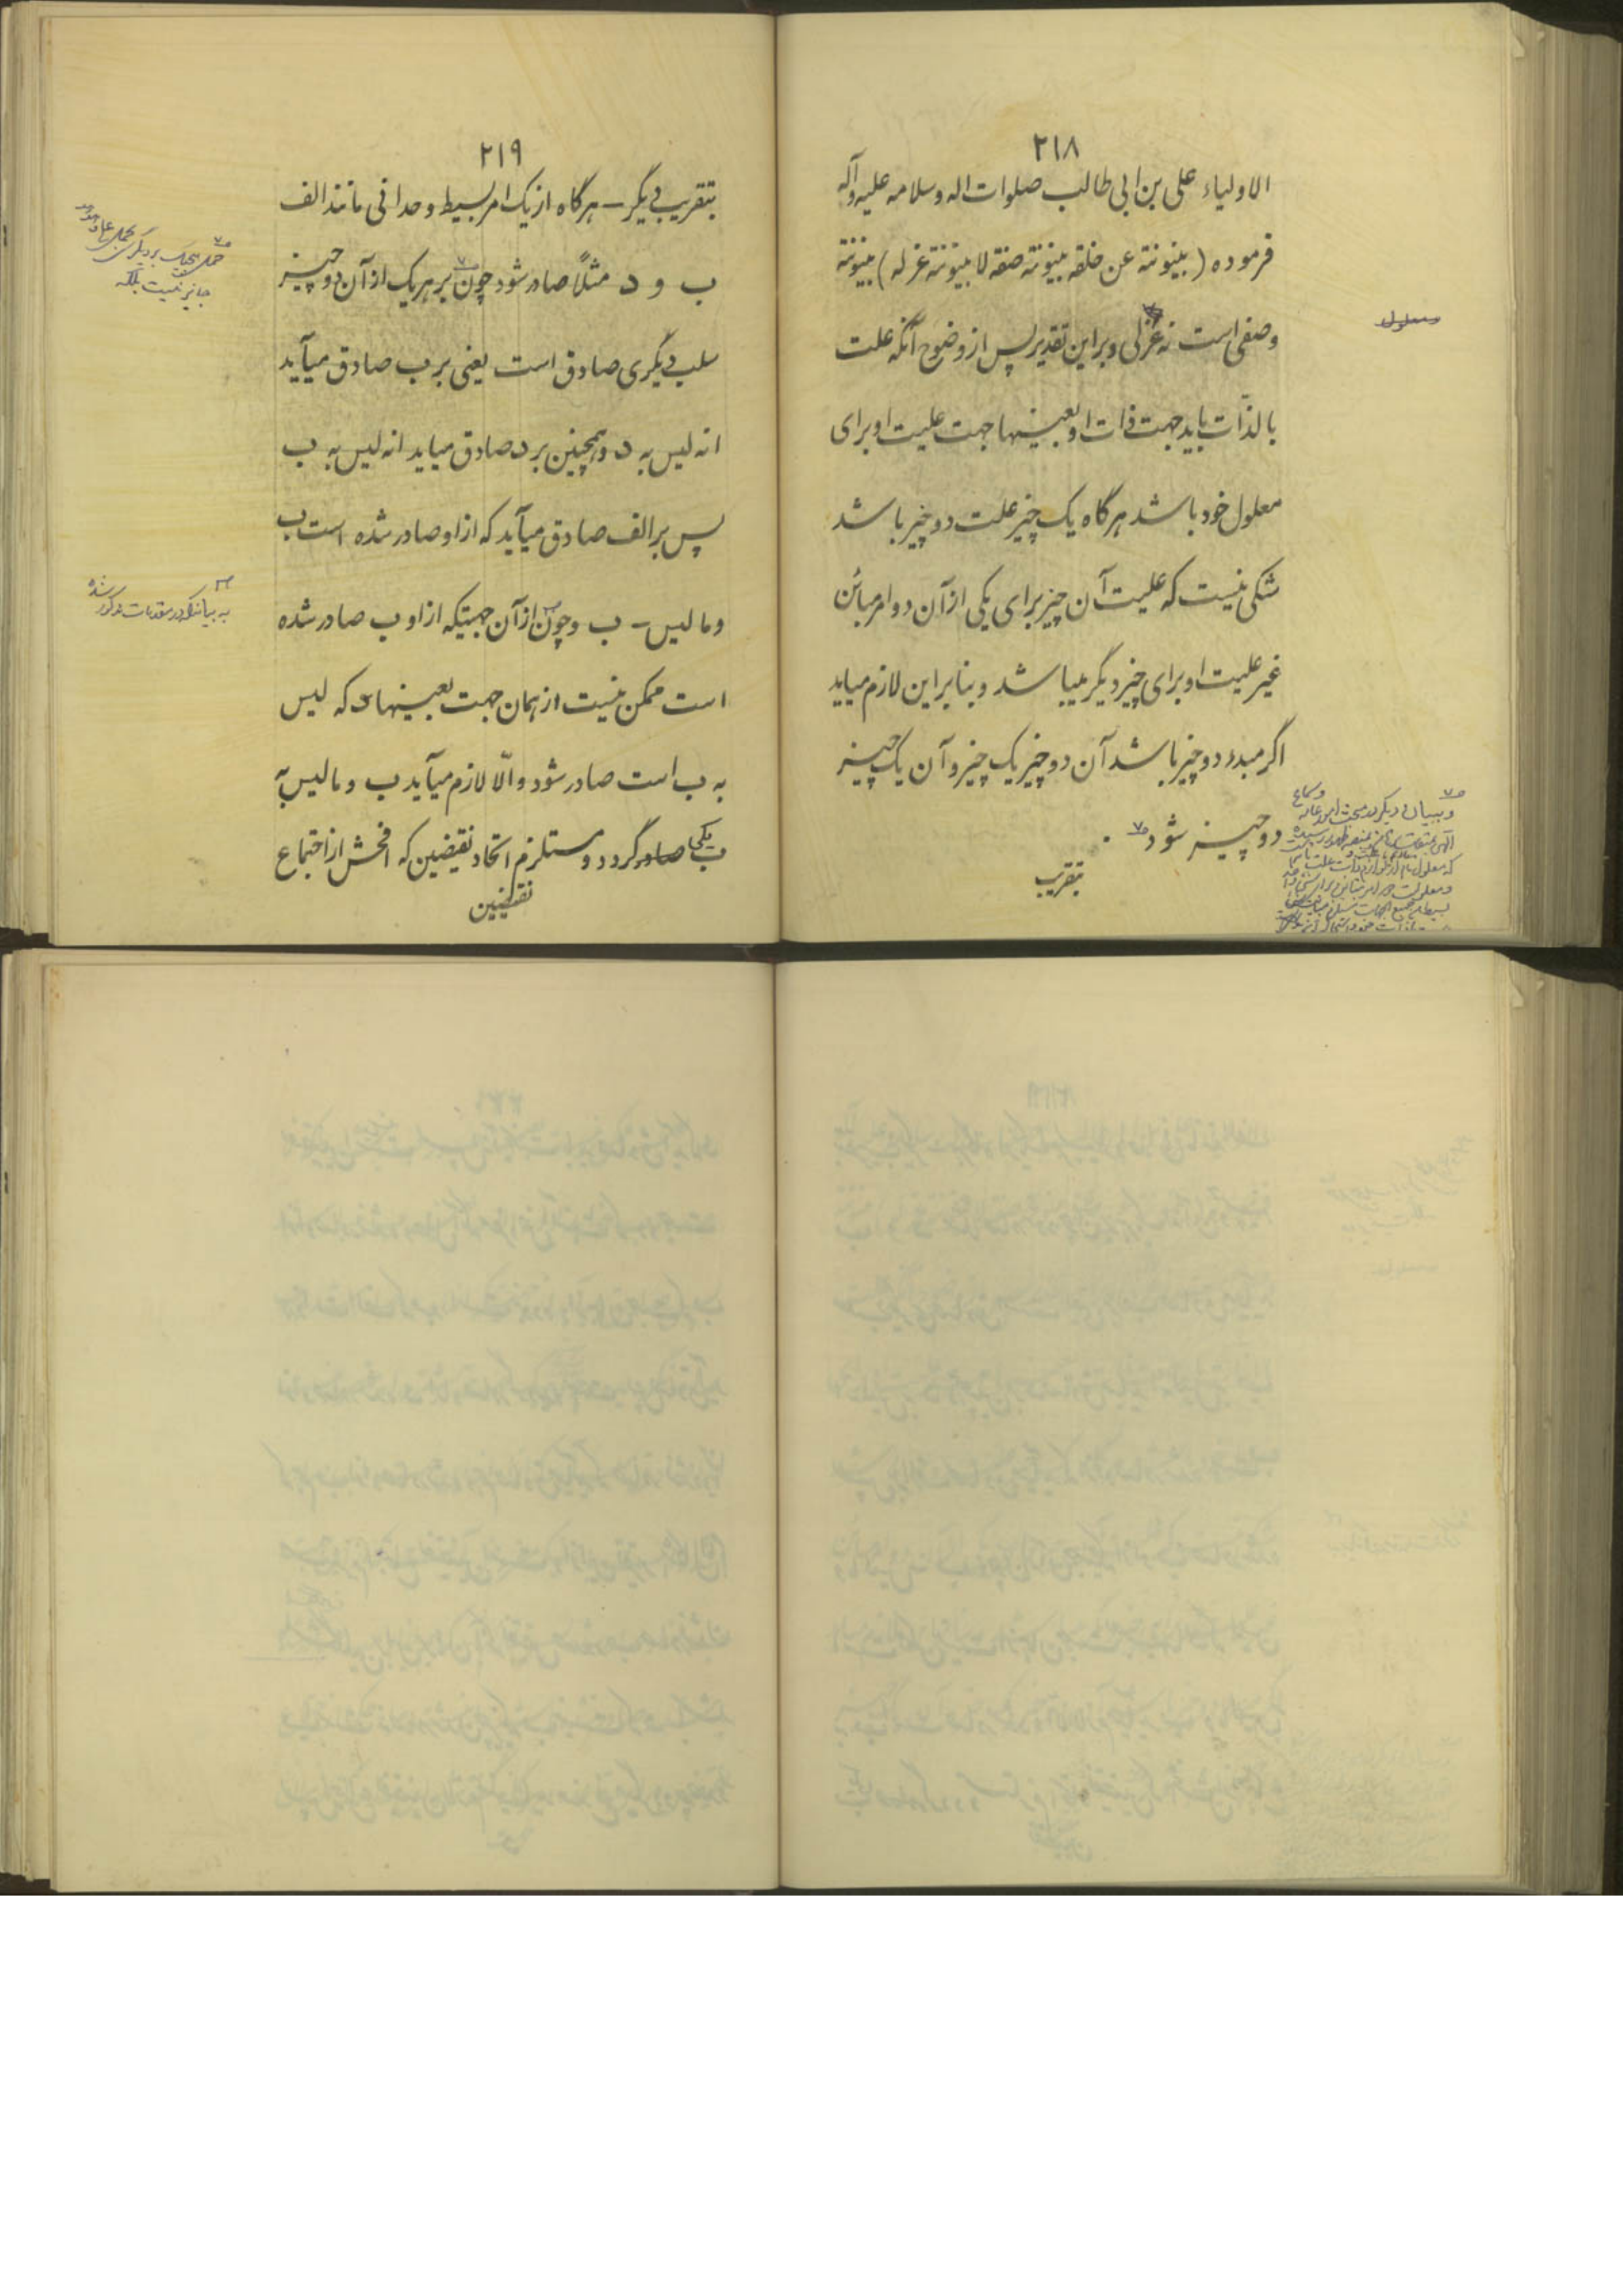 ۲۱۸
الاولیاء علی بن ابی طالب صلوات اله وسلامه علیه وآله
فرموده (بینونته عن خلقه بینونته صفه لا بینونته عزله) بینونته
وصفی است نه عزلی وبراین تقدیر پس از وضوح آنکه علت
بالذّات باید جهت ذات او بعینها جهت علیت او برای
معلول خود باشد هرگاه یک چیز علت دو چیز باشد
شکی نیست که علیت آن چیز برای یکی از آن دو امر مباین
غیر علیت او برای چیز دیگر میباشد وبنابراین لازم میاید
اگر مبدء دو چیز باشد آن دو چیز یک چیز و آن یک چیز
دو چیز شود
تقریب
معلول
وببیان دیگر
۲۱۹
بتقریب دیگر – هرگاه از یک امر بسیط وحدانی مانند الف
ب و د مثلاً صادر شود چون بر هریک از آن دو چیز
سلب دیگری صادق است یعنی بر ب صادق میآید
انه لیس به د وهمچنین بر د صادق میاید انه لیس به ب
پس بر الف صادق میآید که از او صادر شده است ب
وما لیس – ب وچون از آن جهتیکه از او ب صادر شده
است ممکن نیست از همان جهت بعینها که لیس
به ب است صادر شود والّا لازم میآید ب وما لیس به
ب یکی صادر گردد ومستلزم اتحاد نقیضین که افحش از اجتماع
نقیضین
حمل هیچیک بر دیگری بحمل
جایز نیست بلکه
به بیانیکه در مقدمات مذکور شده